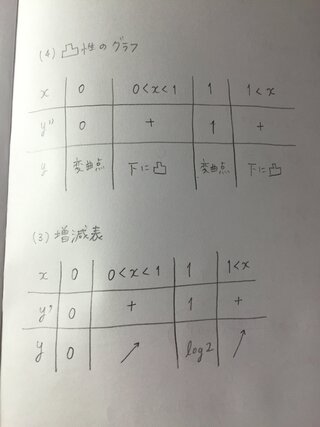 (4) 凸性のグラフ
x 0 0<x<1 1 1<x
y'' 0 + 1 +
y 変曲点 下に凸 変曲点 下に凸
(3) 増減表
x 0 0<x<1 1 1<x
y' 0 + 1 +
y 0 ↗ log2 ↗